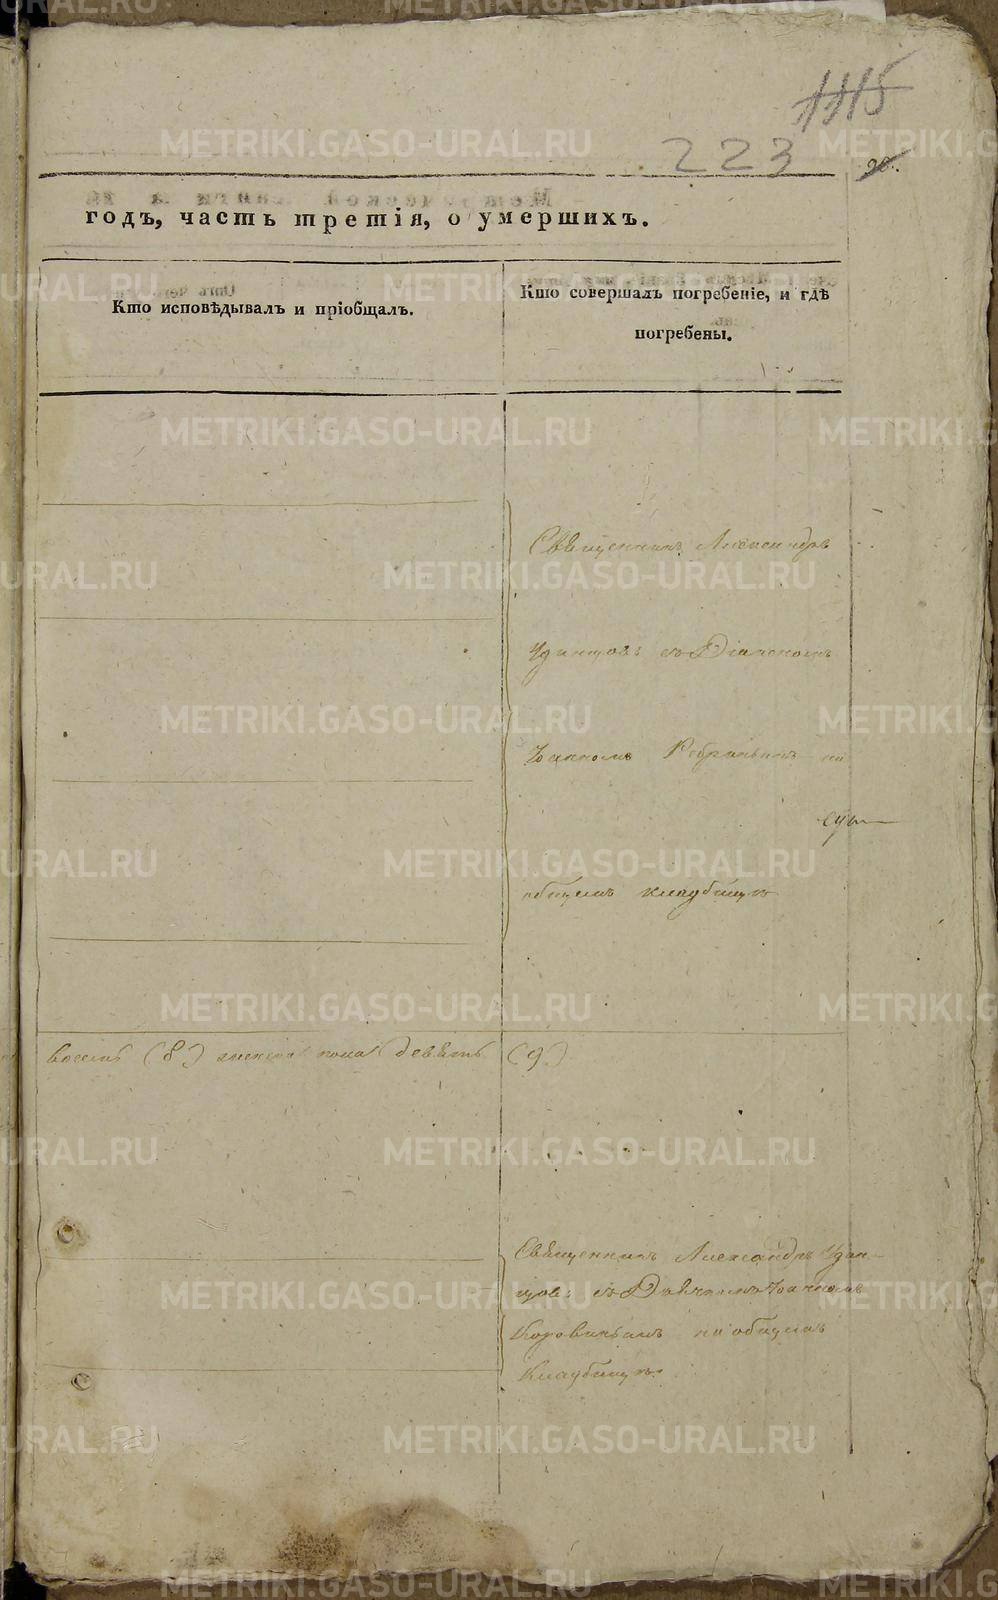 1115
223
98.
годъ, часть третія, о умершихъ.
Кто исповѣдывалъ и пріобщалъ.
Кто совершалъ погребеніе, и гдѣ
погребены.
Священникъ Александръ
Удинцовъ съ Діакономъ
Іоанномъ на
общемъ кладбищѣ
восемь (8) женска пола девять (9)
Священникъ Александръ Удин-
цовъ съ Іоанномъ
Коровинымъ на общемъ
Кладбищѣ
METRIKI.GASO-URAL.RU